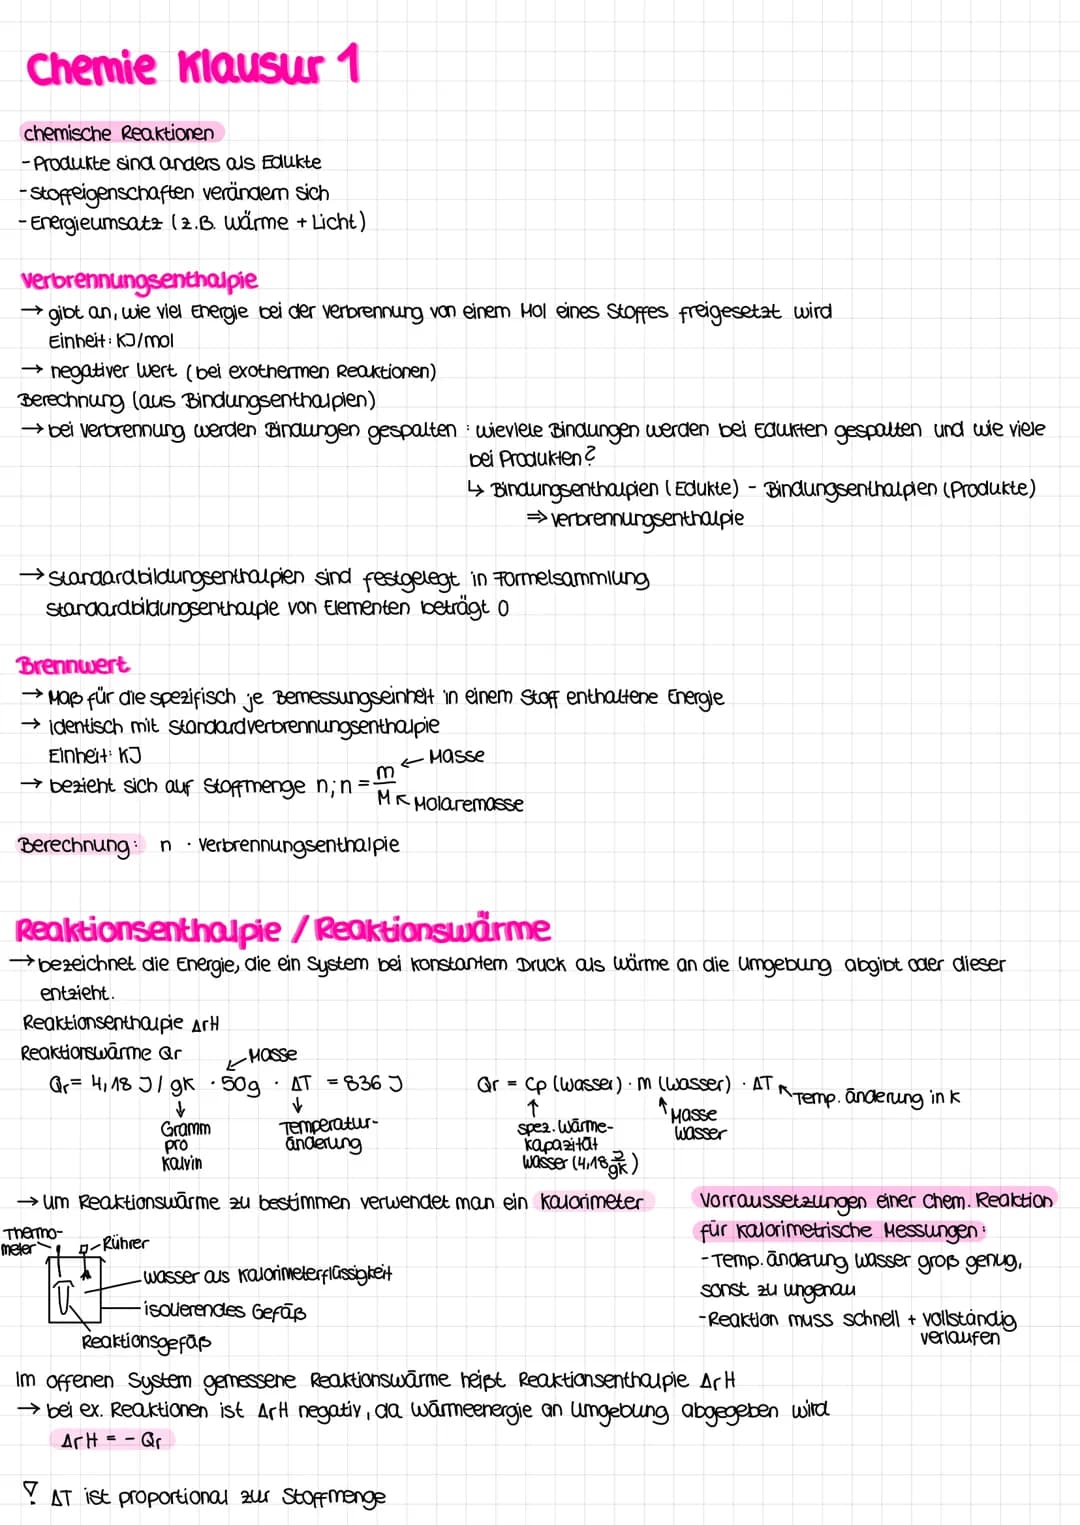 Chemie Klausur 1
chemische Reaktionen
- Produkte sind anders als Edukte
- Stoffeigenschaften verändern sich
- Energieumsatz (z.B. Wärme + Licht)
Verbrennungsenthalpie
→ gibt an, wie viel Energie bei der Verbrennung von einem Mol eines Stoffes freigesetzt wird
Einheit: KJ/mol
→ negativer Wert (bei exothermen Reaktionen)
Berechnung (aus Bindungsenthalpien)
→ bei Verbrennung werden Bindungen gespalten : wieviele Bindungen werden bei Edukten gespalten und wie viele
bei Produkten?
↳ Bindungsenthalpien (Edukte) - Bindungsenthalpien (Produkte)
⇒ Verbrennungsenthalpie
→ Standardbildungsenthalpien sind festgelegt in Formelsammlung
Standardbildungsenthalpie von Elementen beträgt 0
Brennwert
→ Maß für die spezifisch je Bemessungseinheit in einem Stoff enthaltene Energie
→ identisch mit Standardverbrennungsenthalpie
Einheit: KJ
→ bezieht sich auf Stoffmenge n; n = m/M
← Masse
↖ Molaremasse
Berechnung: n · Verbrennungsenthalpie
Reaktionsenthalpie / Reaktionswärme
→ bezeichnet die Energie, die ein System bei konstantem Druck als Wärme an die Umgebung abgibt oder dieser
entzieht.
Reaktionsenthalpie ΔrH
Reaktionswärme Qr
↙ Masse
Qr = 4,18 J/gK · 50g · ΔT = 836 J
↓ Gramm
pro
Kalvin
↓ Temperatur-
änderung
Qr = Cp (wasser) · m (wasser) · ΔT
↖ Temp. änderung in K
↑ spez. Wärme-
kapazität
Wasser (4,18 J/gK)
↖ Masse
Wasser
→ um Reaktionswärme zu bestimmen verwendet man ein Kalorimeter
Thermo-
meter
Rührer
Wasser als Kalorimeterflüssigkeit
isolierendes Gefäß
Reaktionsgefäß
Vorraussetzungen einer chem. Reaktion
für kalorimetrische Messungen:
- Temp. änderung Wasser groß genug,
sonst zu ungenau
- Reaktion muss schnell + vollständig
verlaufen
Im offenen System gemessene Reaktionswärme heißt Reaktionsenthalpie ΔrH
→ bei ex. Reaktionen ist ΔrH negativ, da Wärmeenergie an Umgebung abgegeben wird
ΔrH = - Qr
! ΔT ist proportional zur Stoffmenge